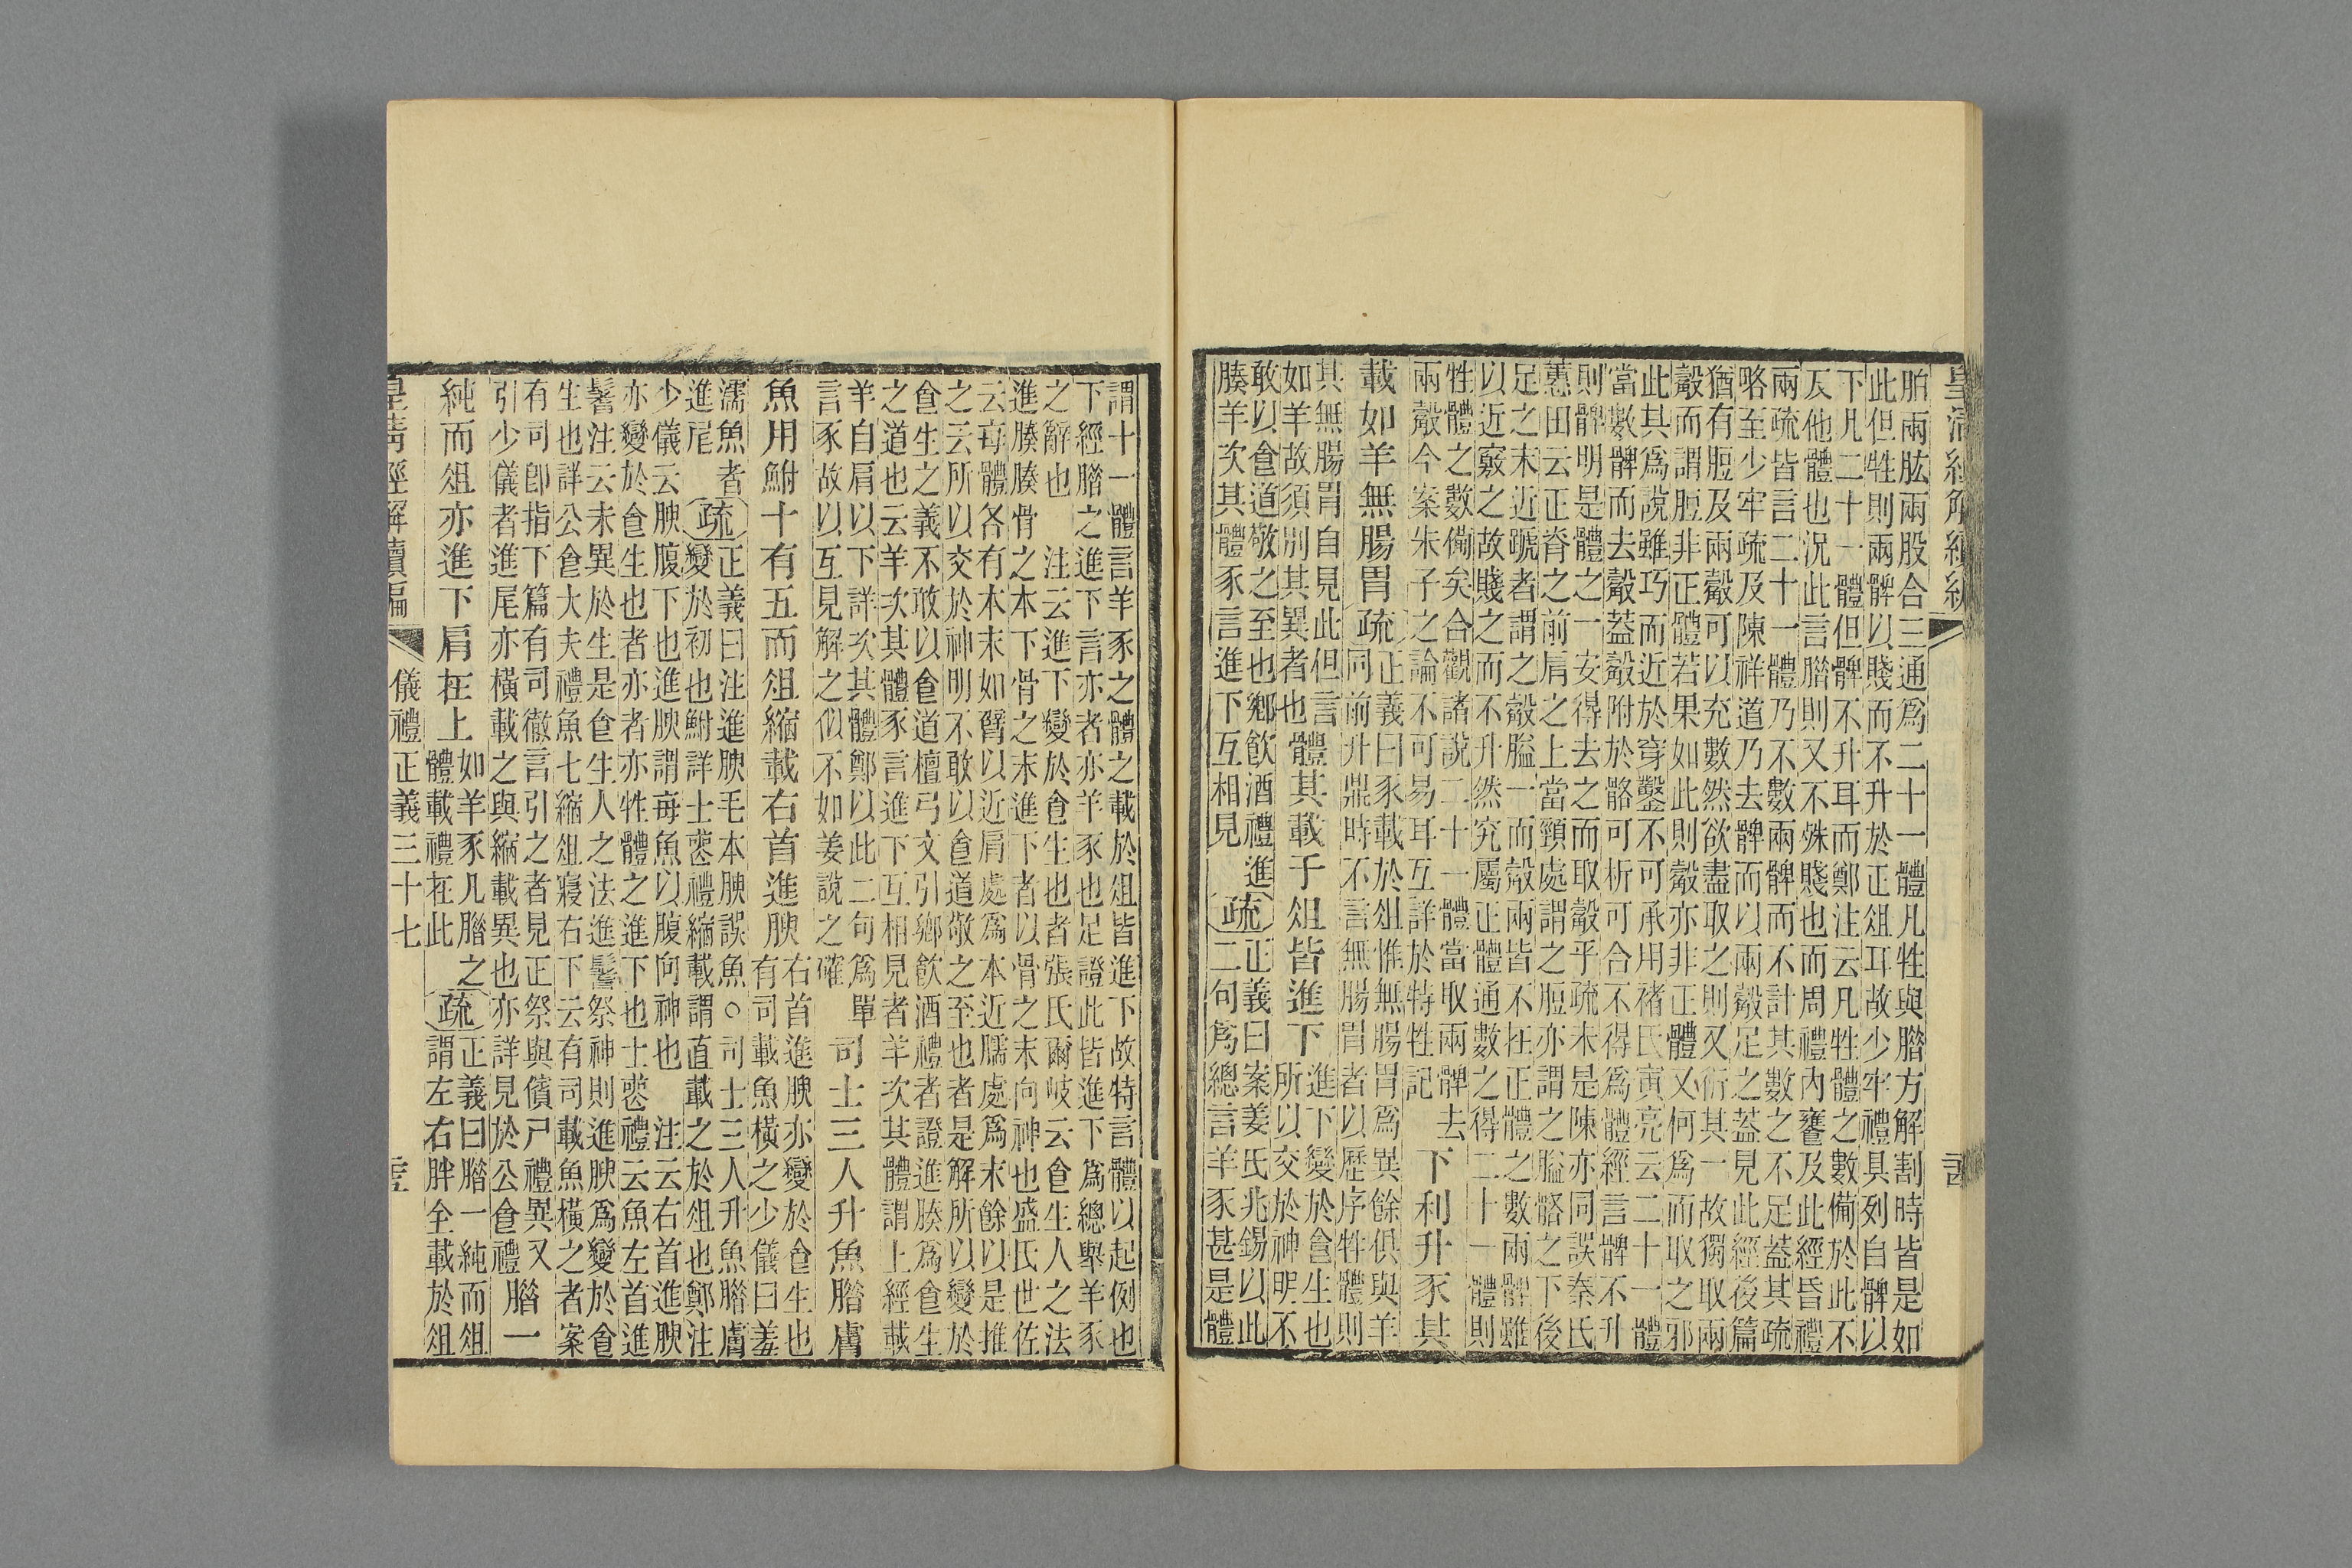 皇清經解續編
胉兩肱兩股合三通爲二十一體凡牲與腊方解割時皆是如
此但牲則兩髀以賤而不升於正俎耳故少牢禮具列自髀以
下凡二十一體但髀不升耳而鄭注云凡牲體之數備於此不
及他體也況此言腊則又不殊賤也而周禮內饔及此經昏禮
兩疏皆言二十一體乃不數兩髀而不計其數之不足蓋其疏
略至少牢疏及陳祥道乃去髀而以兩觳足之蓋見此經後篇
猶有脰及兩觳可以充數然欲盡取之則又衍其一故獨取兩
觳而謂脰非正體若果如此則觳亦非正體又何爲而取之邪
此其爲說雖巧而近於穿鑿不可承用褚氏寅亮云二十一體
當數髀而去觳蓋觳附於骼可析可合不得爲體經言髀不升
則髀明是體之一安得去之而取觳乎疏未是陳亦同誤秦氏
蕙田云正脊之前肩之上當頸處謂之脰亦謂之膉骼之下後
足之末近蹏者謂之觳膉一而觳兩皆不在正體之數兩髀雖
以近竅之故賤之而不升然究屬正體通數之得二十一體則
牲體之數備矣合觀諸說二十一體當取兩髀去
兩觳今案朱子之論不可易耳互詳於特牲記
下利升豕其
載如羊無腸胃
疏
正義曰豕載於俎惟無腸胃爲異餘俱與羊
同前升鼎時不言無腸胃者以歷序牲體則
其無腸胃自見此但言
如羊故須別其異者也
體其載于俎皆進下
進下變於食生也
所以交於神明不
敢以食道敬之至也鄉飲酒禮進
腠羊次其體豕言進下互相見
疏
正義曰案姜氏兆錫以此
二句爲總言羊豕甚是體
謂十一體言羊豕之體之載於俎皆進下故特言體以起例也
下經腊之進下言亦者亦羊豕也足證此皆進下爲總舉羊豕
之辭也 注云進下變於食生也者張氏爾岐云食生人之法
進腠腠骨之本下骨之末進下者以骨之末向神也盛氏世佐
云每體各有本末如臂以近肩處爲本近臑處爲末餘以是推
之云所以交於神明不敢以食道敬之至也者是解所以變於
食生之義不敢以食道檀弓文引鄉飲酒禮者證進腠爲食生
之道也云羊次其體豕言進下互相見者羊次其體謂上經載
羊自肩以下詳次其體鄭以此二句爲單
言豕故以互見解之似不如姜說之確
司士三人升魚腊膚
魚用鮒十有五而俎縮載右首進腴
右首進腴亦變於食生也
有司載魚橫之少儀曰羞
濡魚者
進尾
疏
正義曰注進腴毛本腴誤魚○司士三人升魚腊膚
變於初也鮒詳士喪禮縮載謂直載之於俎也鄭注
少儀云腴腹下也進腴謂每魚以腹向神也 注云右首進腴
亦變於食生也者亦者亦牲體之進下也士喪禮云魚左首進
鬐注云未異於生是食生人之法進鬐祭神則進腴爲變於食
生也詳公食大夫禮魚七縮俎寢右下云有司載魚橫之者案
有司卽指下篇有司徹言引之者見正祭與儐尸禮異又
引少儀者進尾亦橫載之與縮載異也亦詳見於公食禮
腊一
純而俎亦進下肩在上
如羊豕凡腊之
體載禮在此
疏
正義曰腊一純而俎
謂左右胖全載於俎
皇清經解續編 儀禮正義三十七